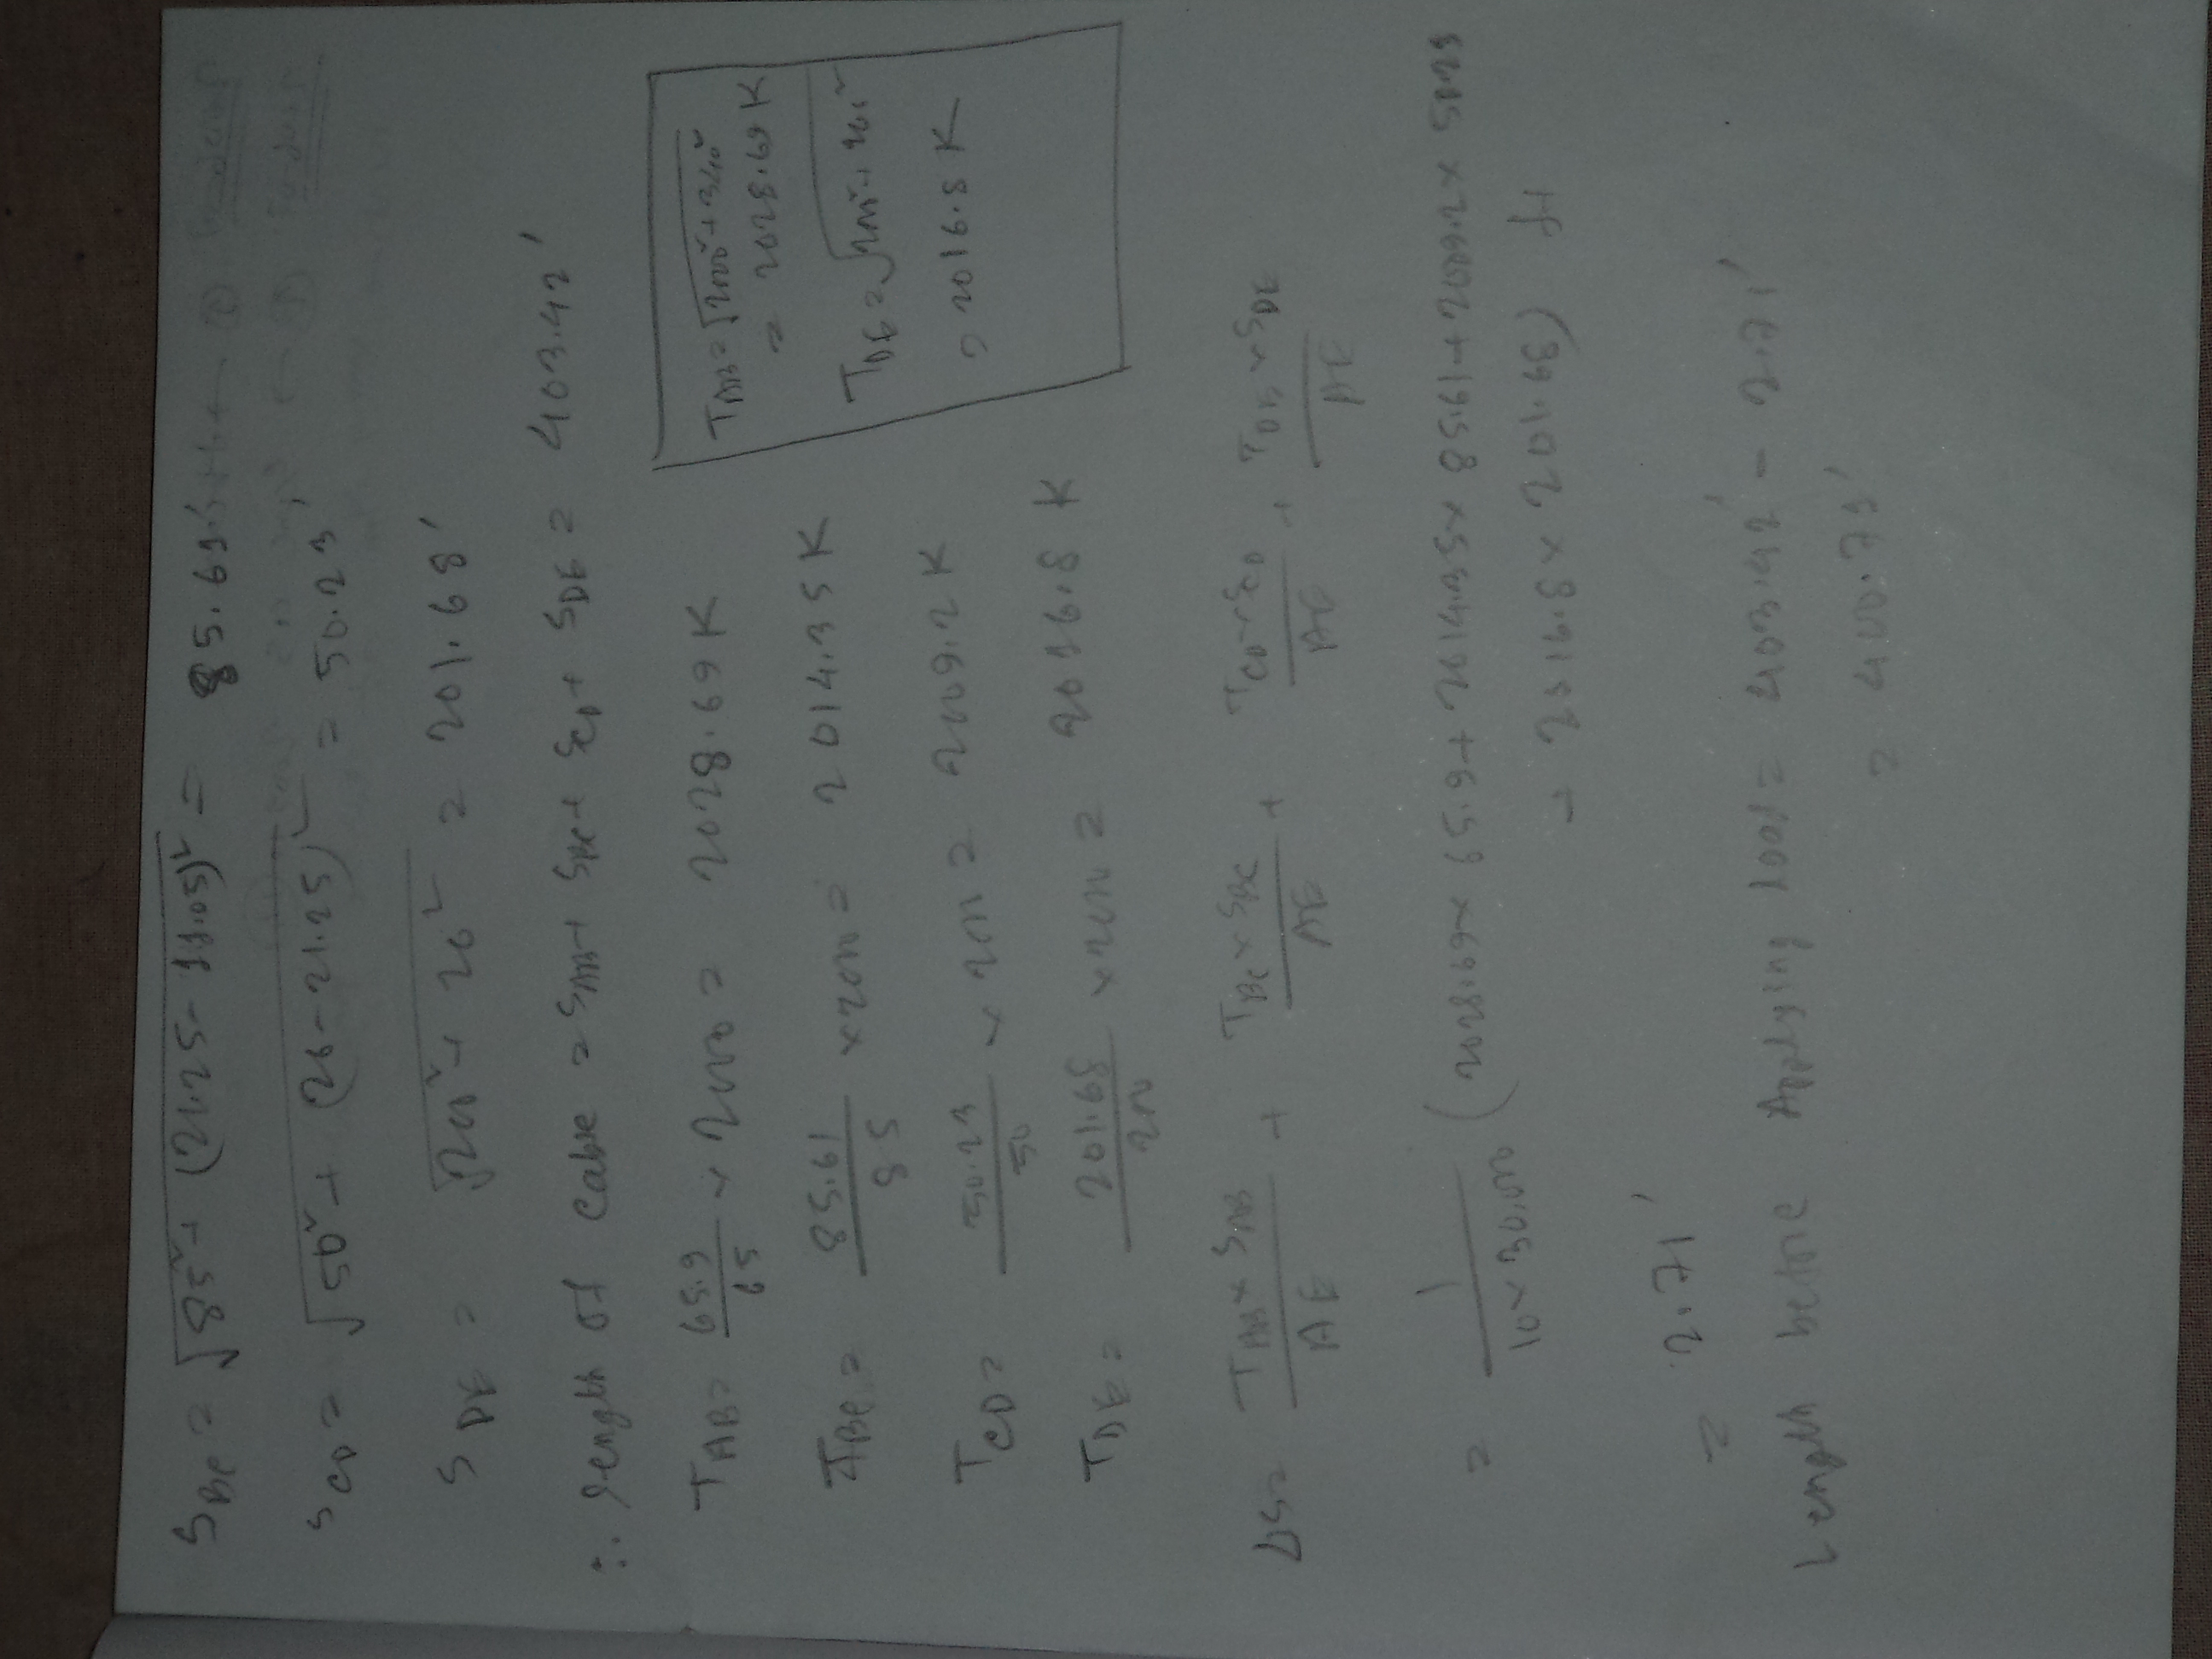 S_BC = √(85² + (21.25 - 11.05)²) = 85.61'
S_CD = √(50² + (26 - 21.25)²) = 50.23'
S_DE = √(200² + 26²) = 201.68'
∴ Length of Cable = S_AB + S_BC + S_CD + S_DE = 403.42'
T_AB = 65.9/65 × 2000 = 2028.69 K
T_BC = 85.61/85 × 2000 = 2014.35 K
T_CD = 50.23/50 × 2000 = 2009.2 K
T_DE = 201.68/200 × 2000 = 2016.8 K
T_AB = √(2000² + 340²)
= 2028.69 K
T_DE = √(2000² + 260²)
= 2016.8 K
Δs = T_AB × S_AB/AE + T_BC × S_BC/AE + T_CD × S_CD/AE + T_DE × S_DE/AE
= 1/10×30,000 (2028.69 × 65.9 + 2014.35 × 85.61 + 2009.2 × 50.23
+ 2016.8 × 201.68) ft
= 2.71'
Length before Applying load = 403.42' - 2.71'
= 400.73'